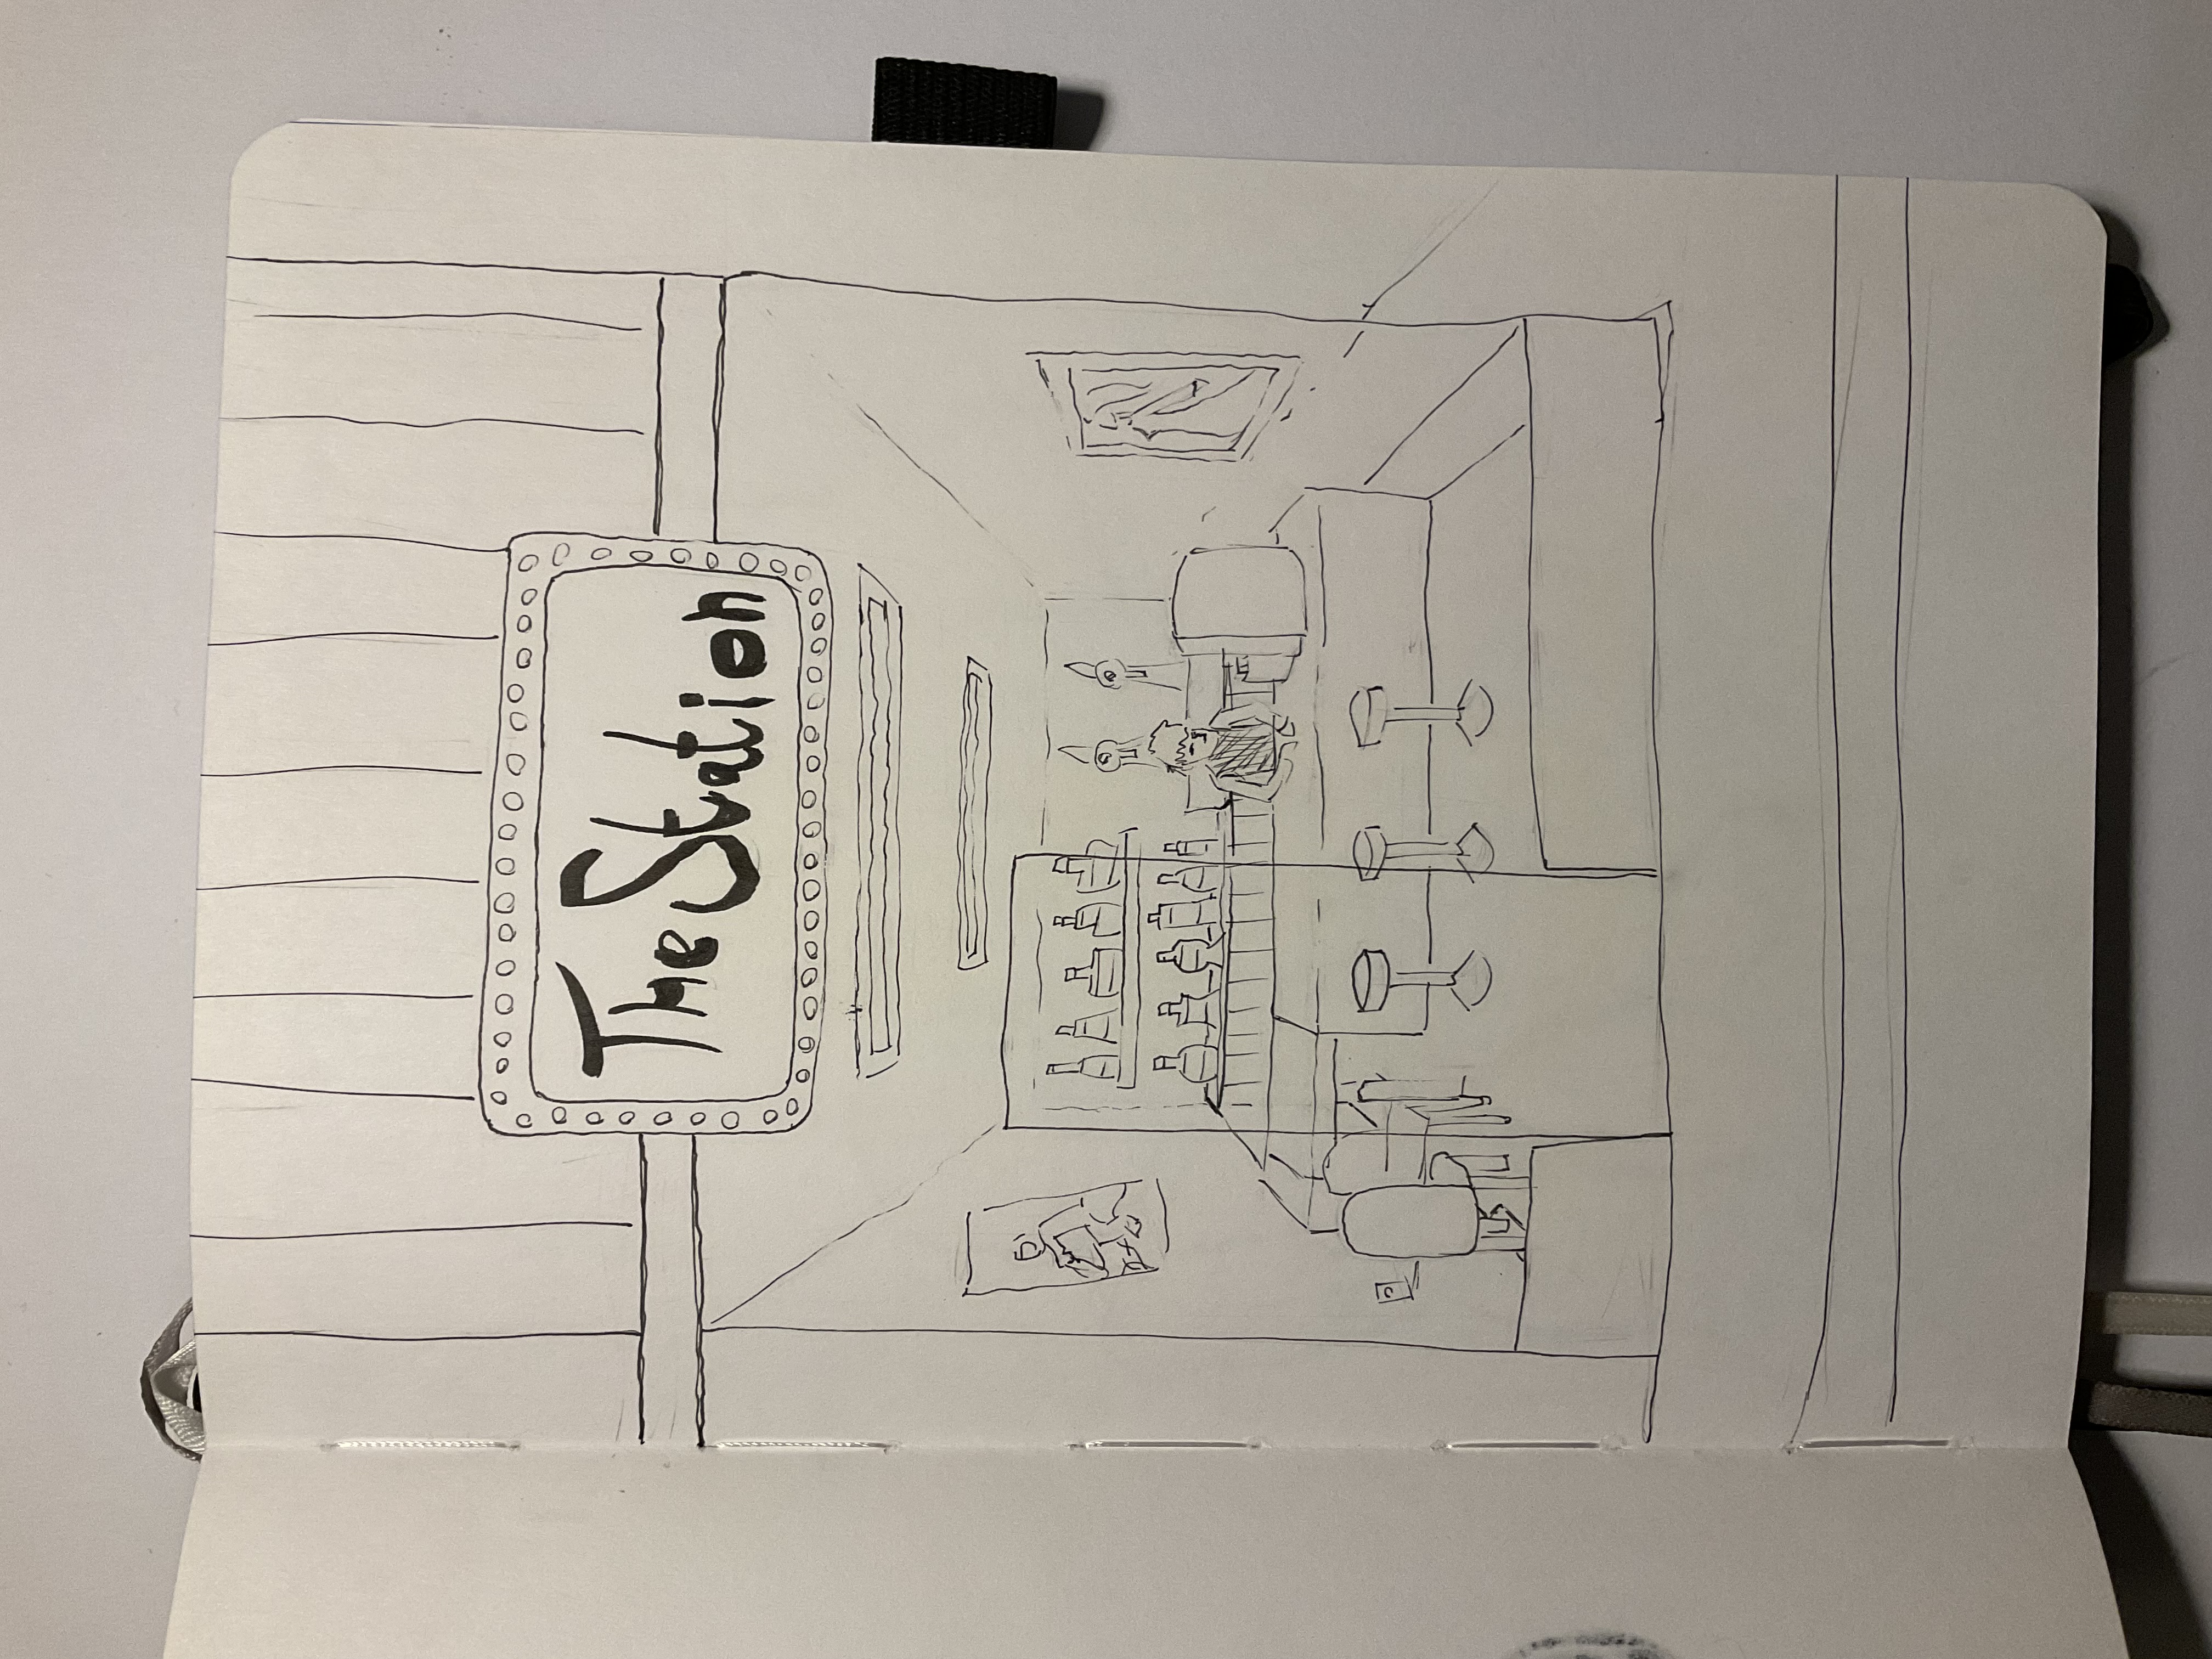 The Station